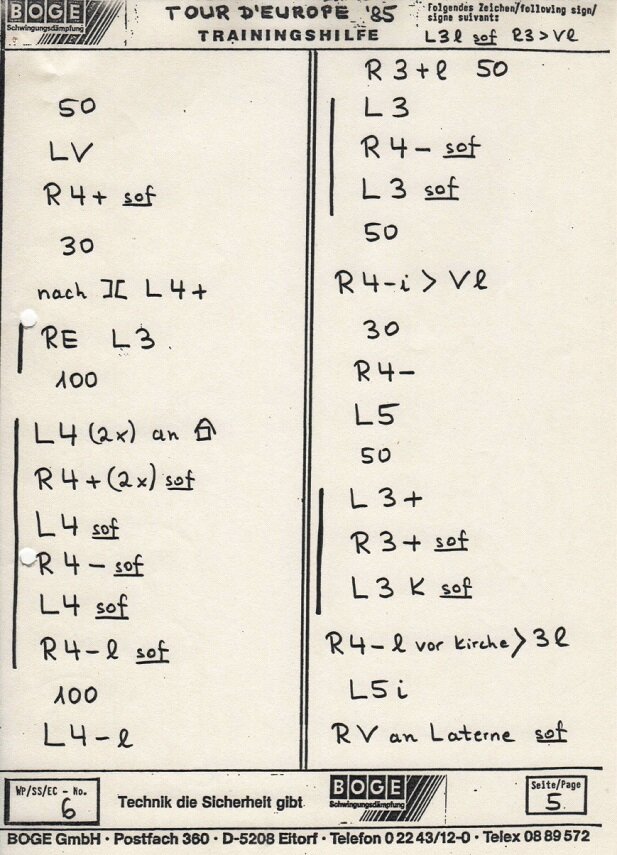 BOGE
Schwingungsdämpfung
TOUR D'EUROPE '85
TRAININGSHILFE
Folgendes Zeichen/following sign/
signe suivant:
L3l sof R3>Vl
50
LV
R4+ sof
30
nach ][ L4+
RE L3
100
L4 (2x) an
R4+(2x) sof
L4 sof
R4- sof
L4 sof
R4-l sof
100
L4-l
R3+l 50
L3
R4- sof
L3 sof
50
R4-i > Vl
30
R4-
L5
50
L3+
R3+ sof
L3 K sof
R4-l vor Kirche > 3l
L5i
RV an Laterne sof
WP/SS/EC - No.
6
Technik die Sicherheit gibt
BOGE
Schwingungsdämpfung
Seite/Page
5
BOGE GmbH · Postfach 360 · D-5208 Eitorf · Telefon 0 22 43/12-0 · Telex 08 89 572